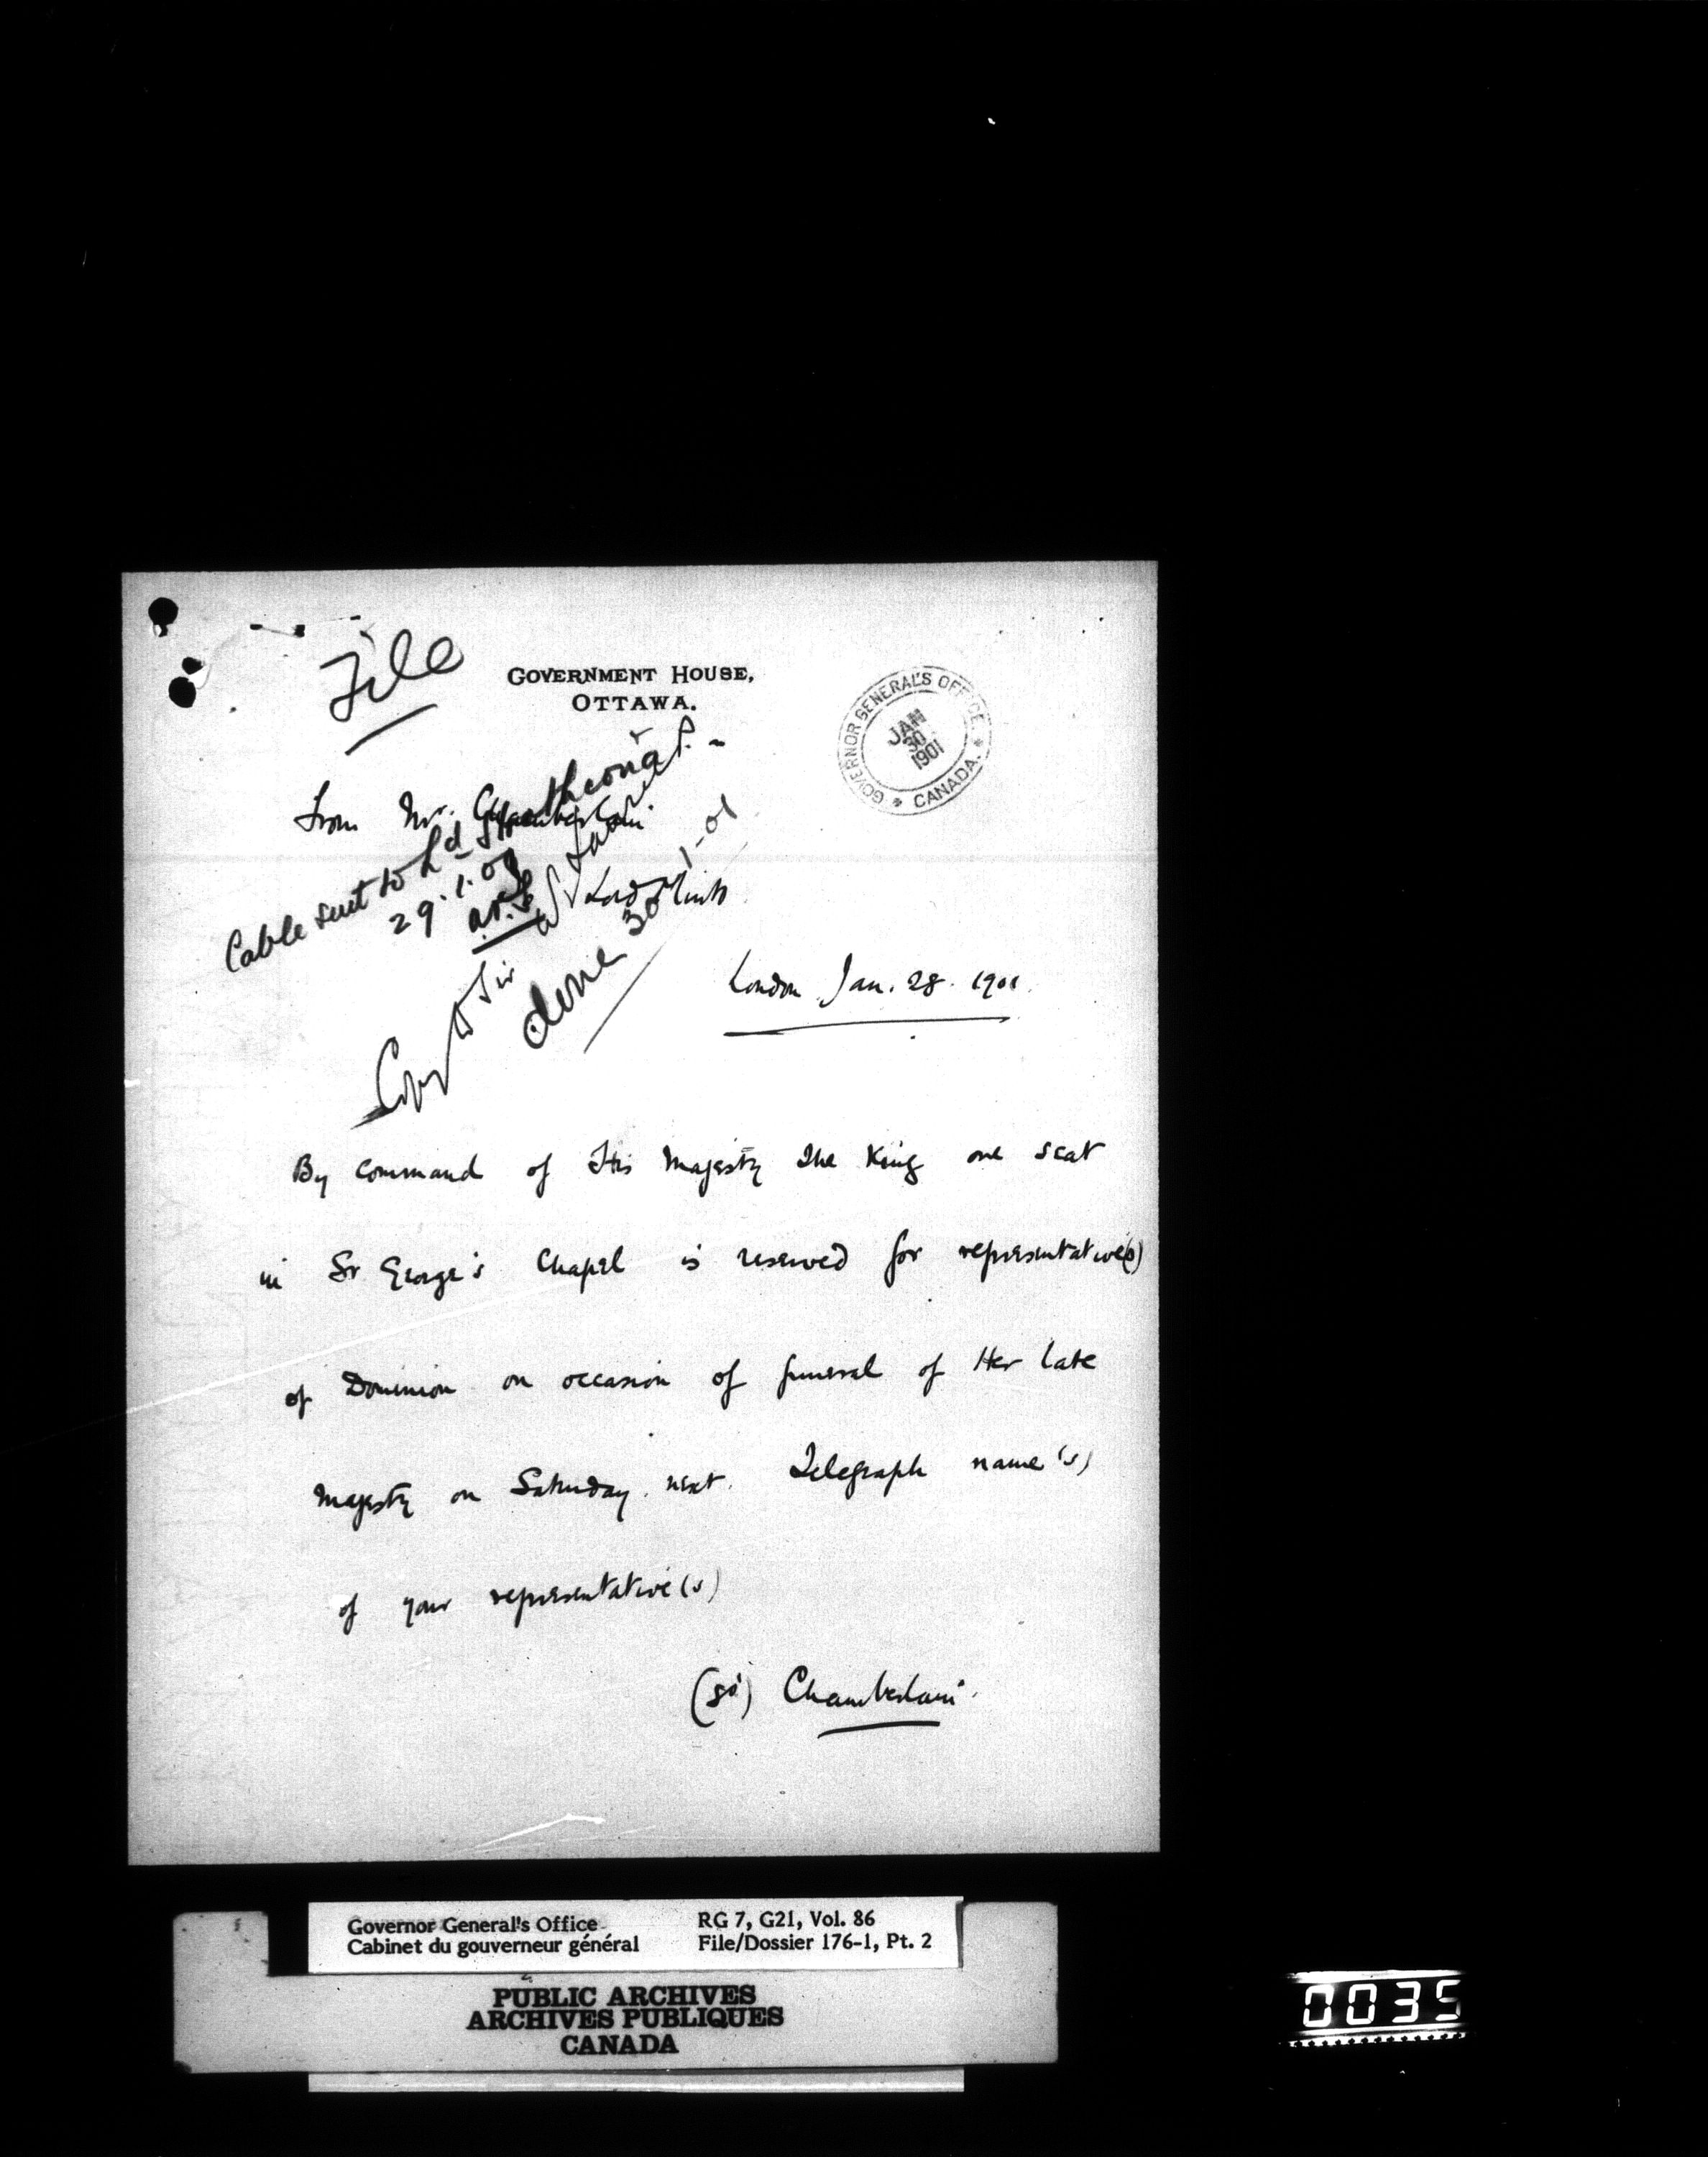 File
GOVERNMENT HOUSE,
OTTAWA.
GOVERNOR GENERAL'S OFFICE.
JAN
30
1901
* CANADA. *
From Mr. Chamberlain
Cable sent to Ld Strathcona
29.1.01
Lord Minto
Copy to Sir W Laurier
done 30-1-01
London Jan. 28. 1901.
By command of His Majesty The King one seat
in St George's Chapel is reserved for representative(s)
of Dominion on occasion of funeral of Her late
Majesty on Saturday next. Telegraph name(s)
of your representative(s)
(sd) Chamberlain.
Governor General's Office RG 7, G21, Vol. 86
Cabinet du gouverneur général File/Dossier 176-1, Pt. 2
PUBLIC ARCHIVES
ARCHIVES PUBLIQUES
CANADA
0035